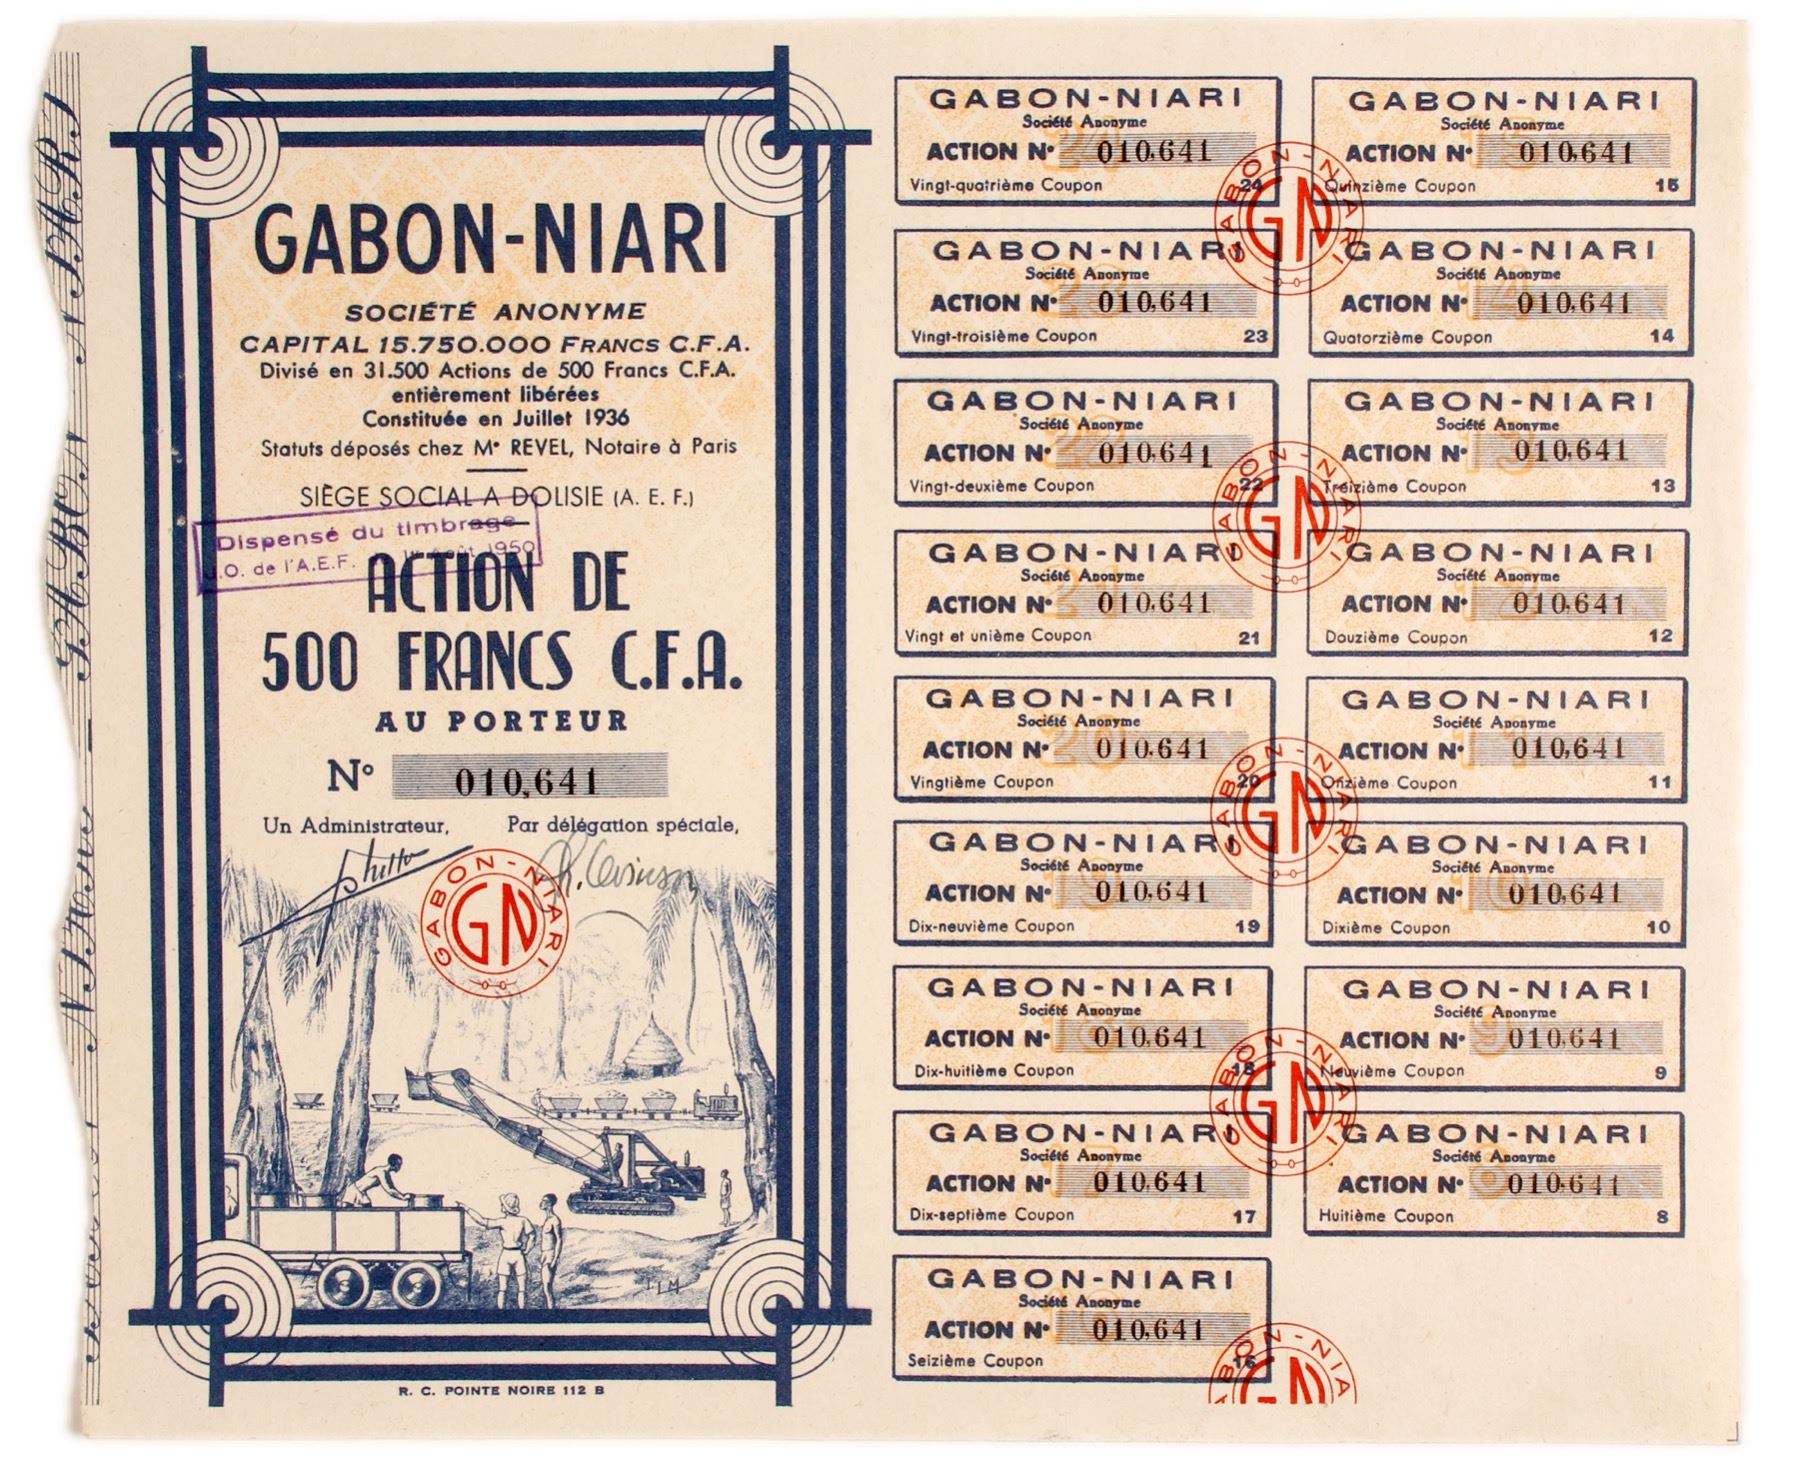 GABON-NIARI
SOCIÉTÉ ANONYME
CAPITAL 15.750.000 FRANCS C.F.A.
Divisé en 31.500 Actions de 500 Francs C.F.A.
entièrement libérées
Constituée en Juillet 1936
Statuts déposés chez Mᵉ REVEL, Notaire à Paris
SIÈGE SOCIAL A DOLISIE (A. E. F.)
Dispensé du timbrage
J.O. de l'A.E.F. Août 1950
ACTION DE
500 FRANCS C.F.A.
AU PORTEUR
Nº 010,641
Un Administrateur, Par délégation spéciale,
GABON-NIARI
GN
R. C. POINTE NOIRE 112 B
GABON-NIARI
Société Anonyme
ACTION Nº 010,641
Vingt-quatrième Coupon 24
GABON-NIARI
Société Anonyme
ACTION Nº 010,641
Vingt-troisième Coupon 23
GABON-NIARI
Société Anonyme
ACTION Nº 010,641
Vingt-deuxième Coupon 22
GABON-NIARI
Société Anonyme
ACTION Nº 010,641
Vingt et unième Coupon 21
GABON-NIARI
Société Anonyme
ACTION Nº 010,641
Vingtième Coupon 20
GABON-NIARI
Société Anonyme
ACTION Nº 010,641
Dix-neuvième Coupon 19
GABON-NIARI
Société Anonyme
ACTION Nº 010,641
Dix-huitième Coupon 18
GABON-NIARI
Société Anonyme
ACTION Nº 010,641
Dix-septième Coupon 17
GABON-NIARI
Société Anonyme
ACTION Nº 010,641
Seizième Coupon 16
GABON-NIARI
Société Anonyme
ACTION Nº 010,641
Quinzième Coupon 15
GABON-NIARI
Société Anonyme
ACTION Nº 010,641
Quatorzième Coupon 14
GABON-NIARI
Société Anonyme
ACTION Nº 010,641
Treizième Coupon 13
GABON-NIARI
Société Anonyme
ACTION Nº 010,641
Douzième Coupon 12
GABON-NIARI
Société Anonyme
ACTION Nº 010,641
Onzième Coupon 11
GABON-NIARI
Société Anonyme
ACTION Nº 010,641
Dixième Coupon 10
GABON-NIARI
Société Anonyme
ACTION Nº 010,641
Neuvième Coupon 9
GABON-NIARI
Société Anonyme
ACTION Nº 010,641
Huitième Coupon 8
GABON-NIARI
GN
GABON-NIARI
GN
GABON-NIARI
GN
GABON-NIARI
GN
GN